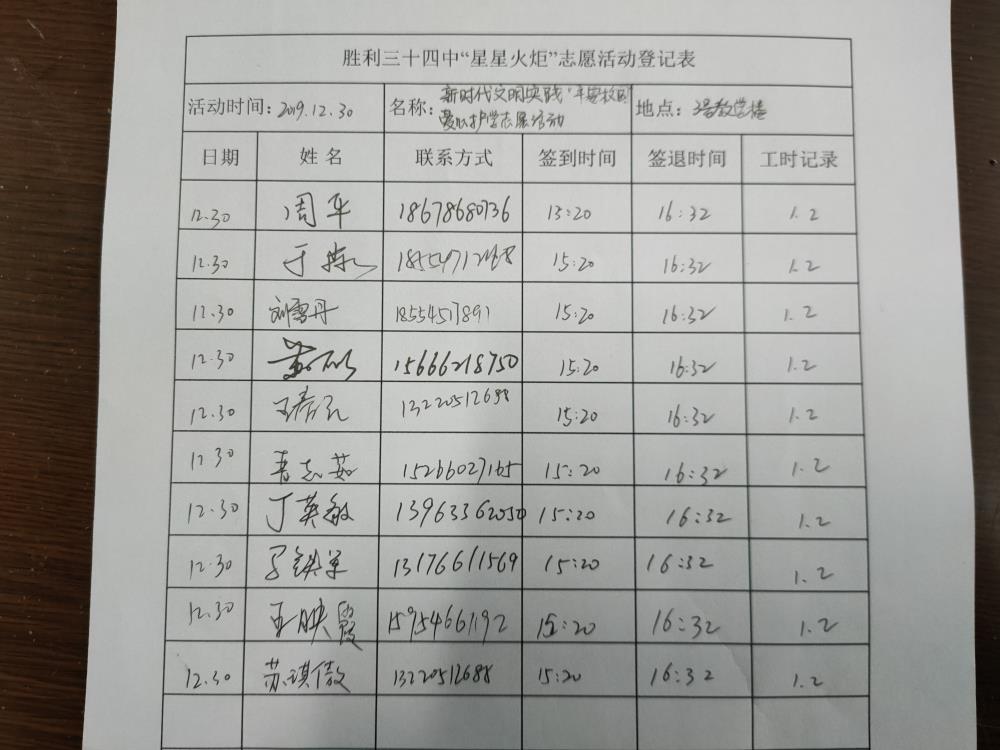 胜利三十四中“星星火炬”志愿活动登记表
活动时间：2019.12.30 名称：新时代文明实践“平安校园 地点：3号教学楼
爱心护学志愿活动
日期 姓名 联系方式 签到时间 签退时间 工时记录
12.30 周华 18678680736 15:20 16:32 1.2
12.30 于 15:20 16:32 1.2
12.30 刘雪丹 18554517891 15:20 16:32 1.2
12.30 15666218750 15:20 16:32 1.2
12.30 王 13220512688 15:20 16:32 1.2
12.30 志茹 15266027165 15:20 16:32 1.2
12.30 丁英敏 13963362050 15:20 16:32 1.2
12.30 13176611569 15:20 16:32 1.2
12.30 王映霞 15954661192 15:20 16:32 1.2
12.30 苏琪傲 13220512688 15:20 16:32 1.2